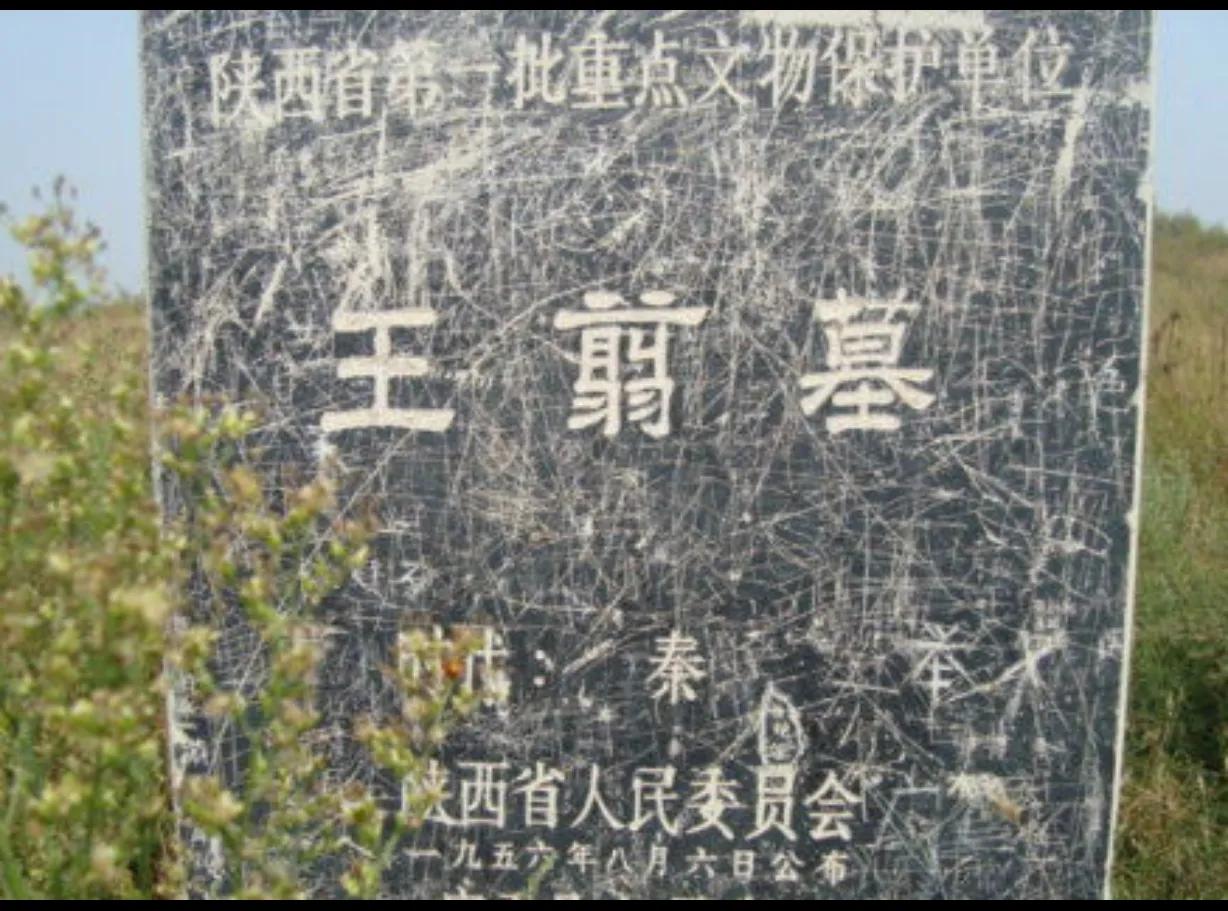 陕西省第一批重点文物保护单位
王翦墓
时代：秦
陕西省人民委员会
一九五六年八月六日公布